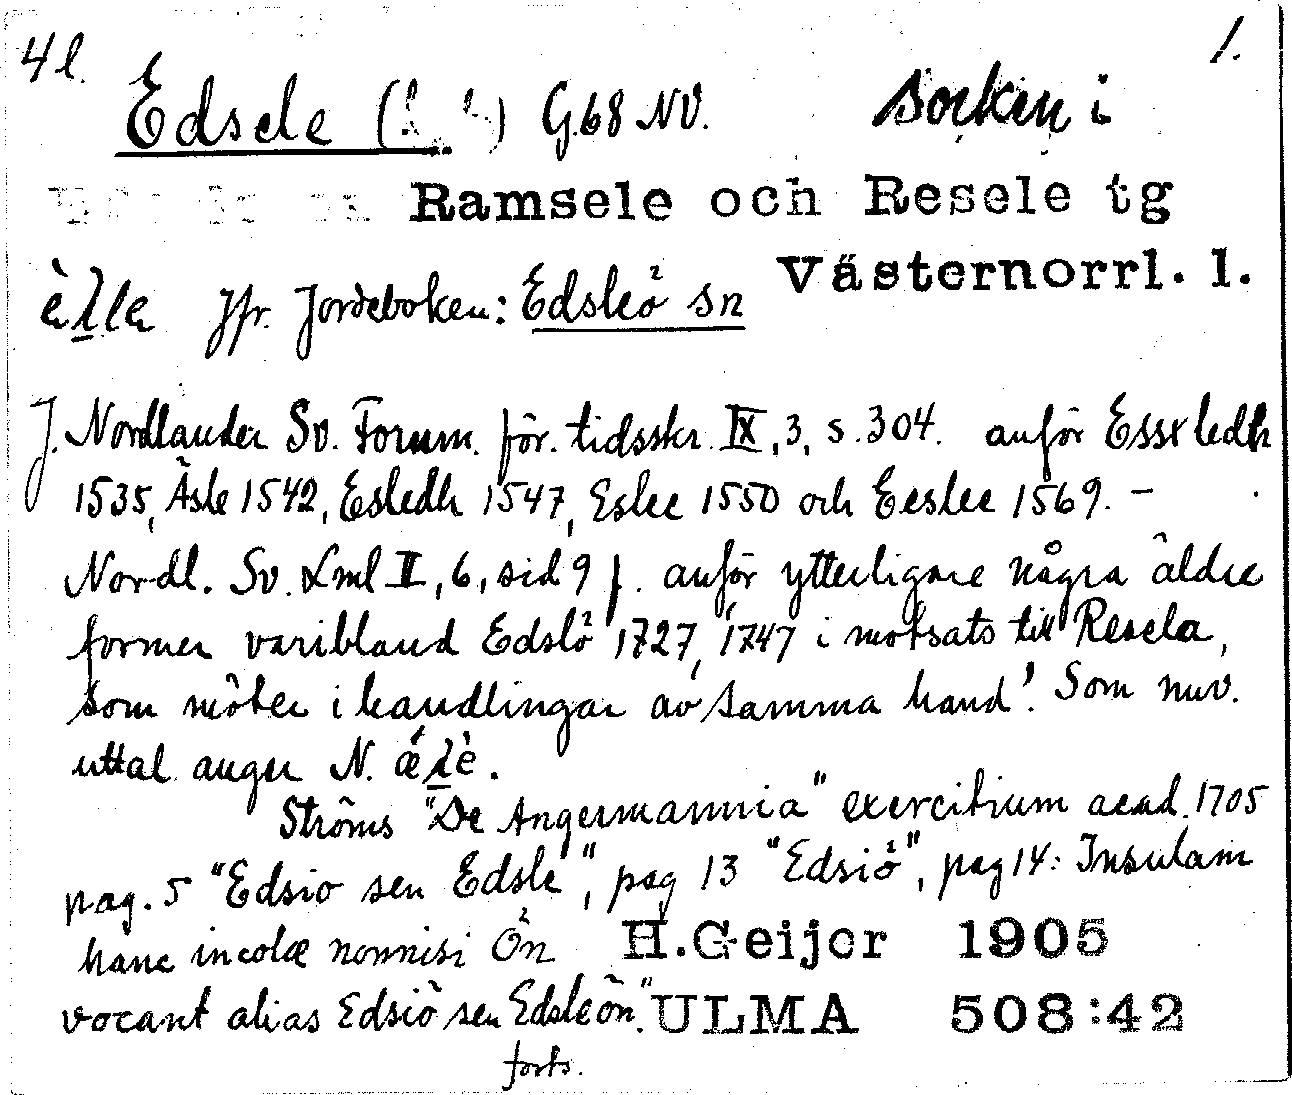 4 l. 1.
Edsele ( ) G.68 NV. socken i
Ramsele och Resele tg
Västernorrl. l.
Jfr. Jordeboken: Edsleö sn
J. Nordlander Sv. Fornm. för. tidsskr. IX, 3, s. 304. anför Essxledh
1535, Äsle 1542, Esledh 1547, Eslee 1550 och Eeslee 1569. -
Nordl. Sv. Lml II, 6, sid 9 f. anför ytterligare några äldre
former varibland Edslö 1727, 1747 i motsats till Resela,
som möter i handlingar av samma hand! Som nuv.
uttal anger N.
Ströms "De Angermannia" exercitium acad. 1705
pag. 5 "Edsio seu Edsle", pag 13 "Edsiö", pag 14: Insulam
hanc incolæ nonnisi Ön H.Geijer 1905
vocant alias Edsiö seu Edsleön." ULMA 508:42
forts.